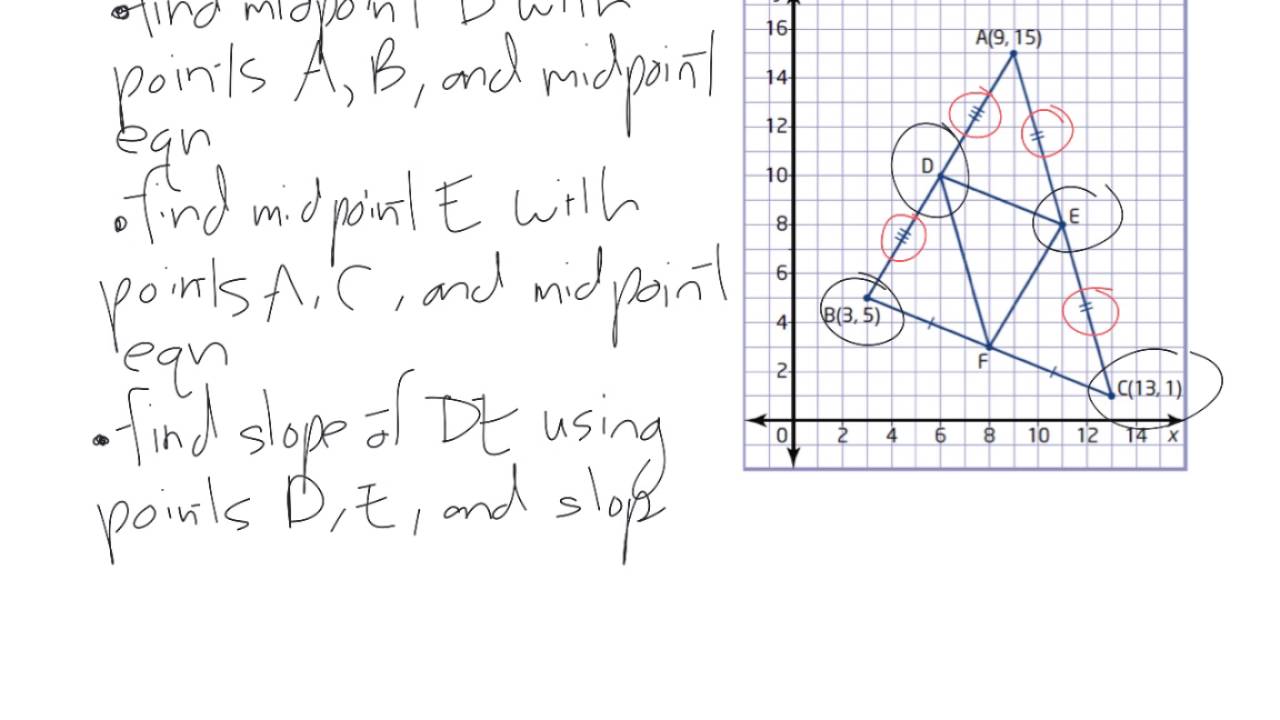 •find midpoint D with
points A, B, and midpoint
eqn
•find midpoint E with
points A, C, and midpoint
eqn
•find slope of DE using
points D, E, and slop
16
A(9, 15)
14
12
10
D
8
E
6
B(3, 5)
4
F
2
C(13, 1)
0 2 4 6 8 10 12 14 x